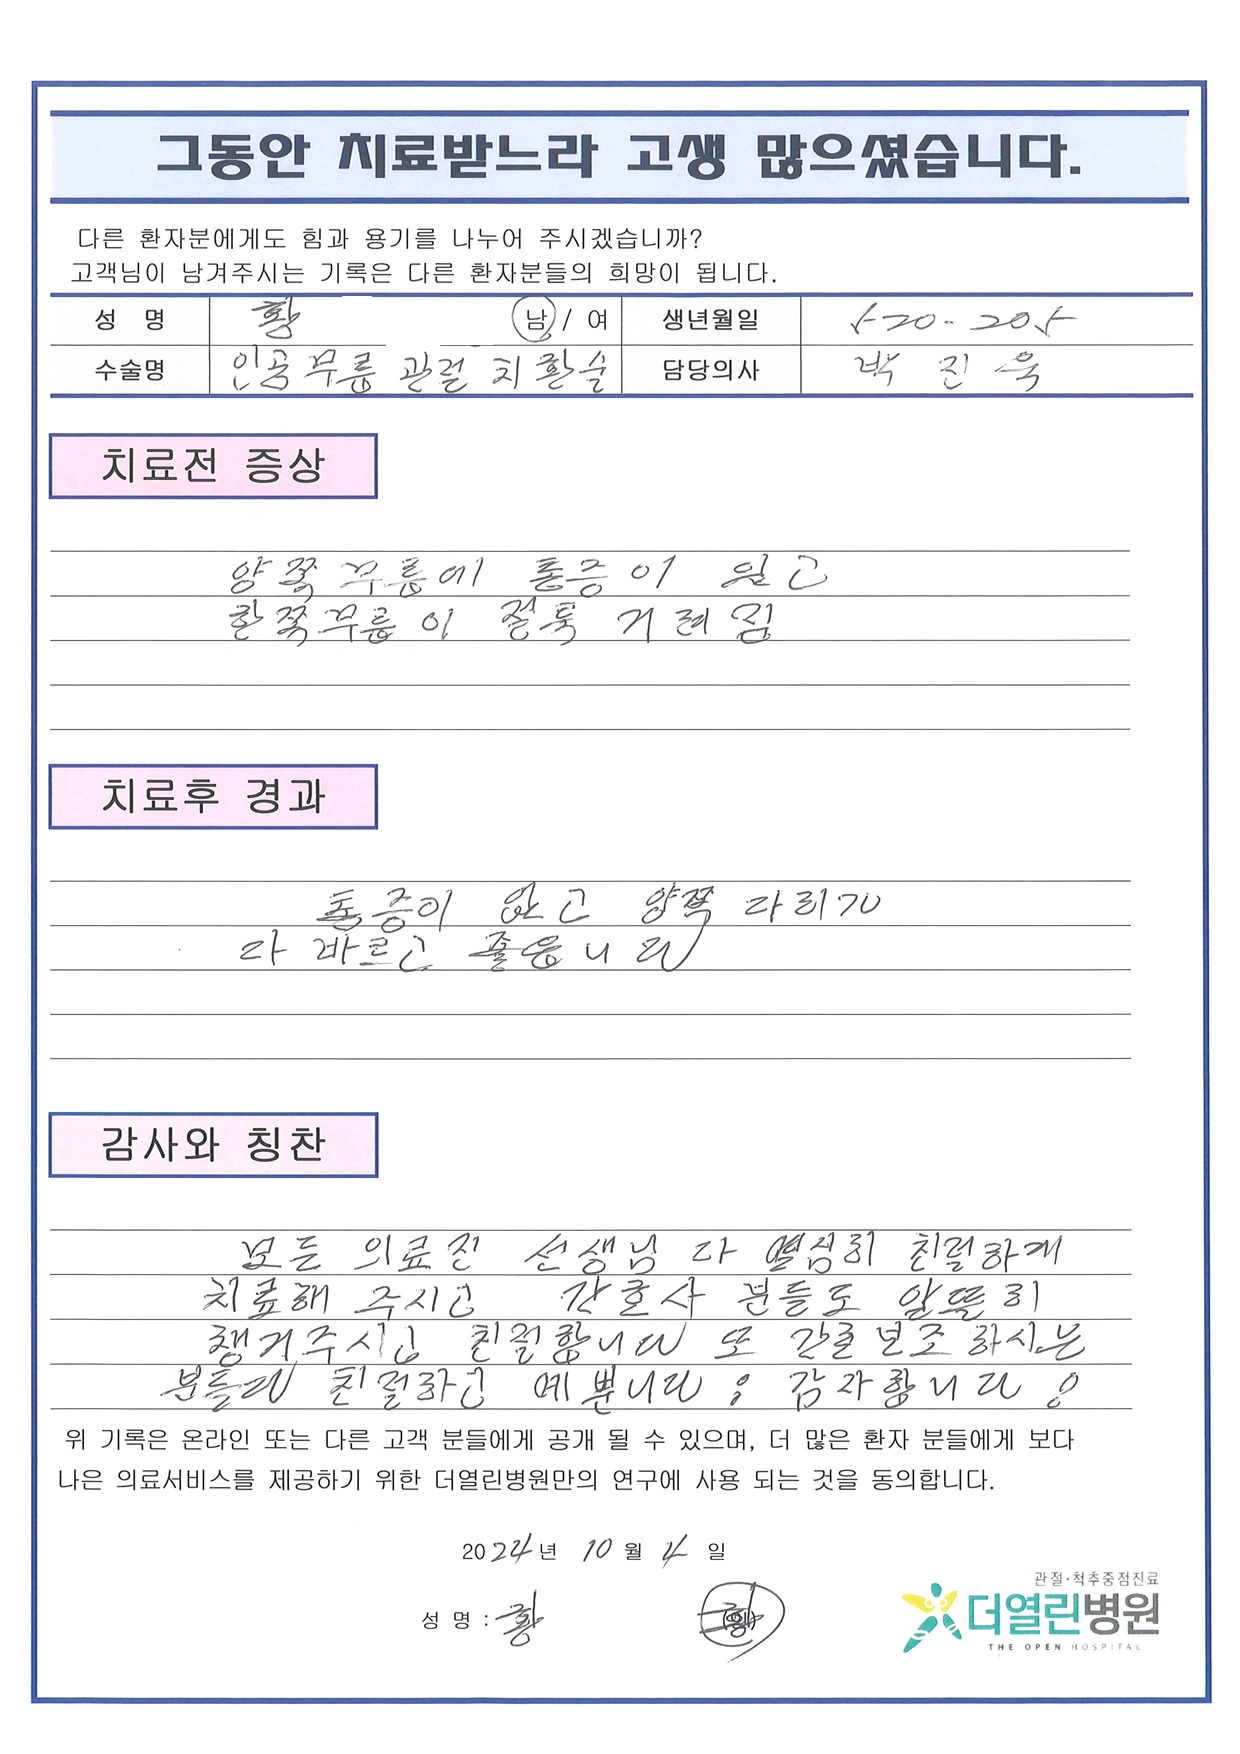 그동안 치료받느라 고생 많으셨습니다.
다른 환자분에게도 힘과 용기를 나누어 주시겠습니까?
고객님이 남겨주시는 기록은 다른 환자분들의 희망이 됩니다.
성 명 황 남 / 여 생년월일
수술명 인공무릎 관절 치환술 담당의사 박진욱
치료전 증상
양쪽무릎에 통증이 있고
한쪽무릎이 절뚝 거려짐
치료후 경과
통증이 없고 양쪽 다리가
다 바르고 좋읍니다
감사와 칭찬
모든 의료진 선생님 다 열심히 친절하게
치료해 주시고 간호사 분들도 알뜰히
챙겨주시고 친절합니다 또 간호보조하시는
분들다 친절하고 예쁩니다! 감사합니다!
위 기록은 온라인 또는 다른 고객 분들에게 공개 될 수 있으며, 더 많은 환자 분들에게 보다
나은 의료서비스를 제공하기 위한 더열린병원만의 연구에 사용 되는 것을 동의합니다.
2024년 10월 4일
성 명 : 황 (인)
관절·척추중점진료
더열린병원
THE OPEN HOSPITAL